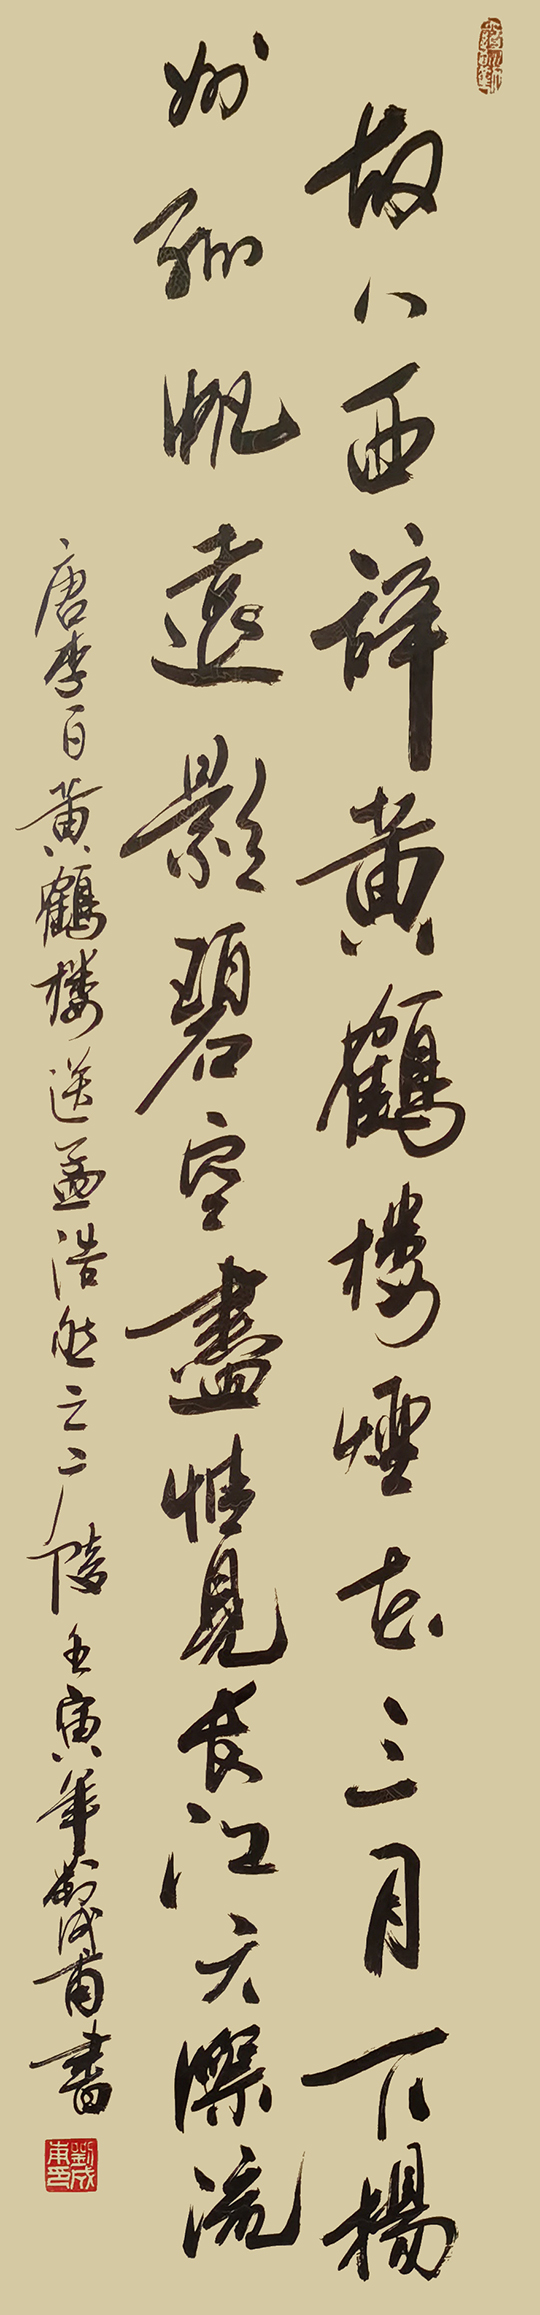 故人西辞黄鶴楼煙花三月下揚
州孤帆遠影碧空盡惟見长江天際流
唐李白黄鶴楼送孟浩然之广陵 壬寅年劉成甫書